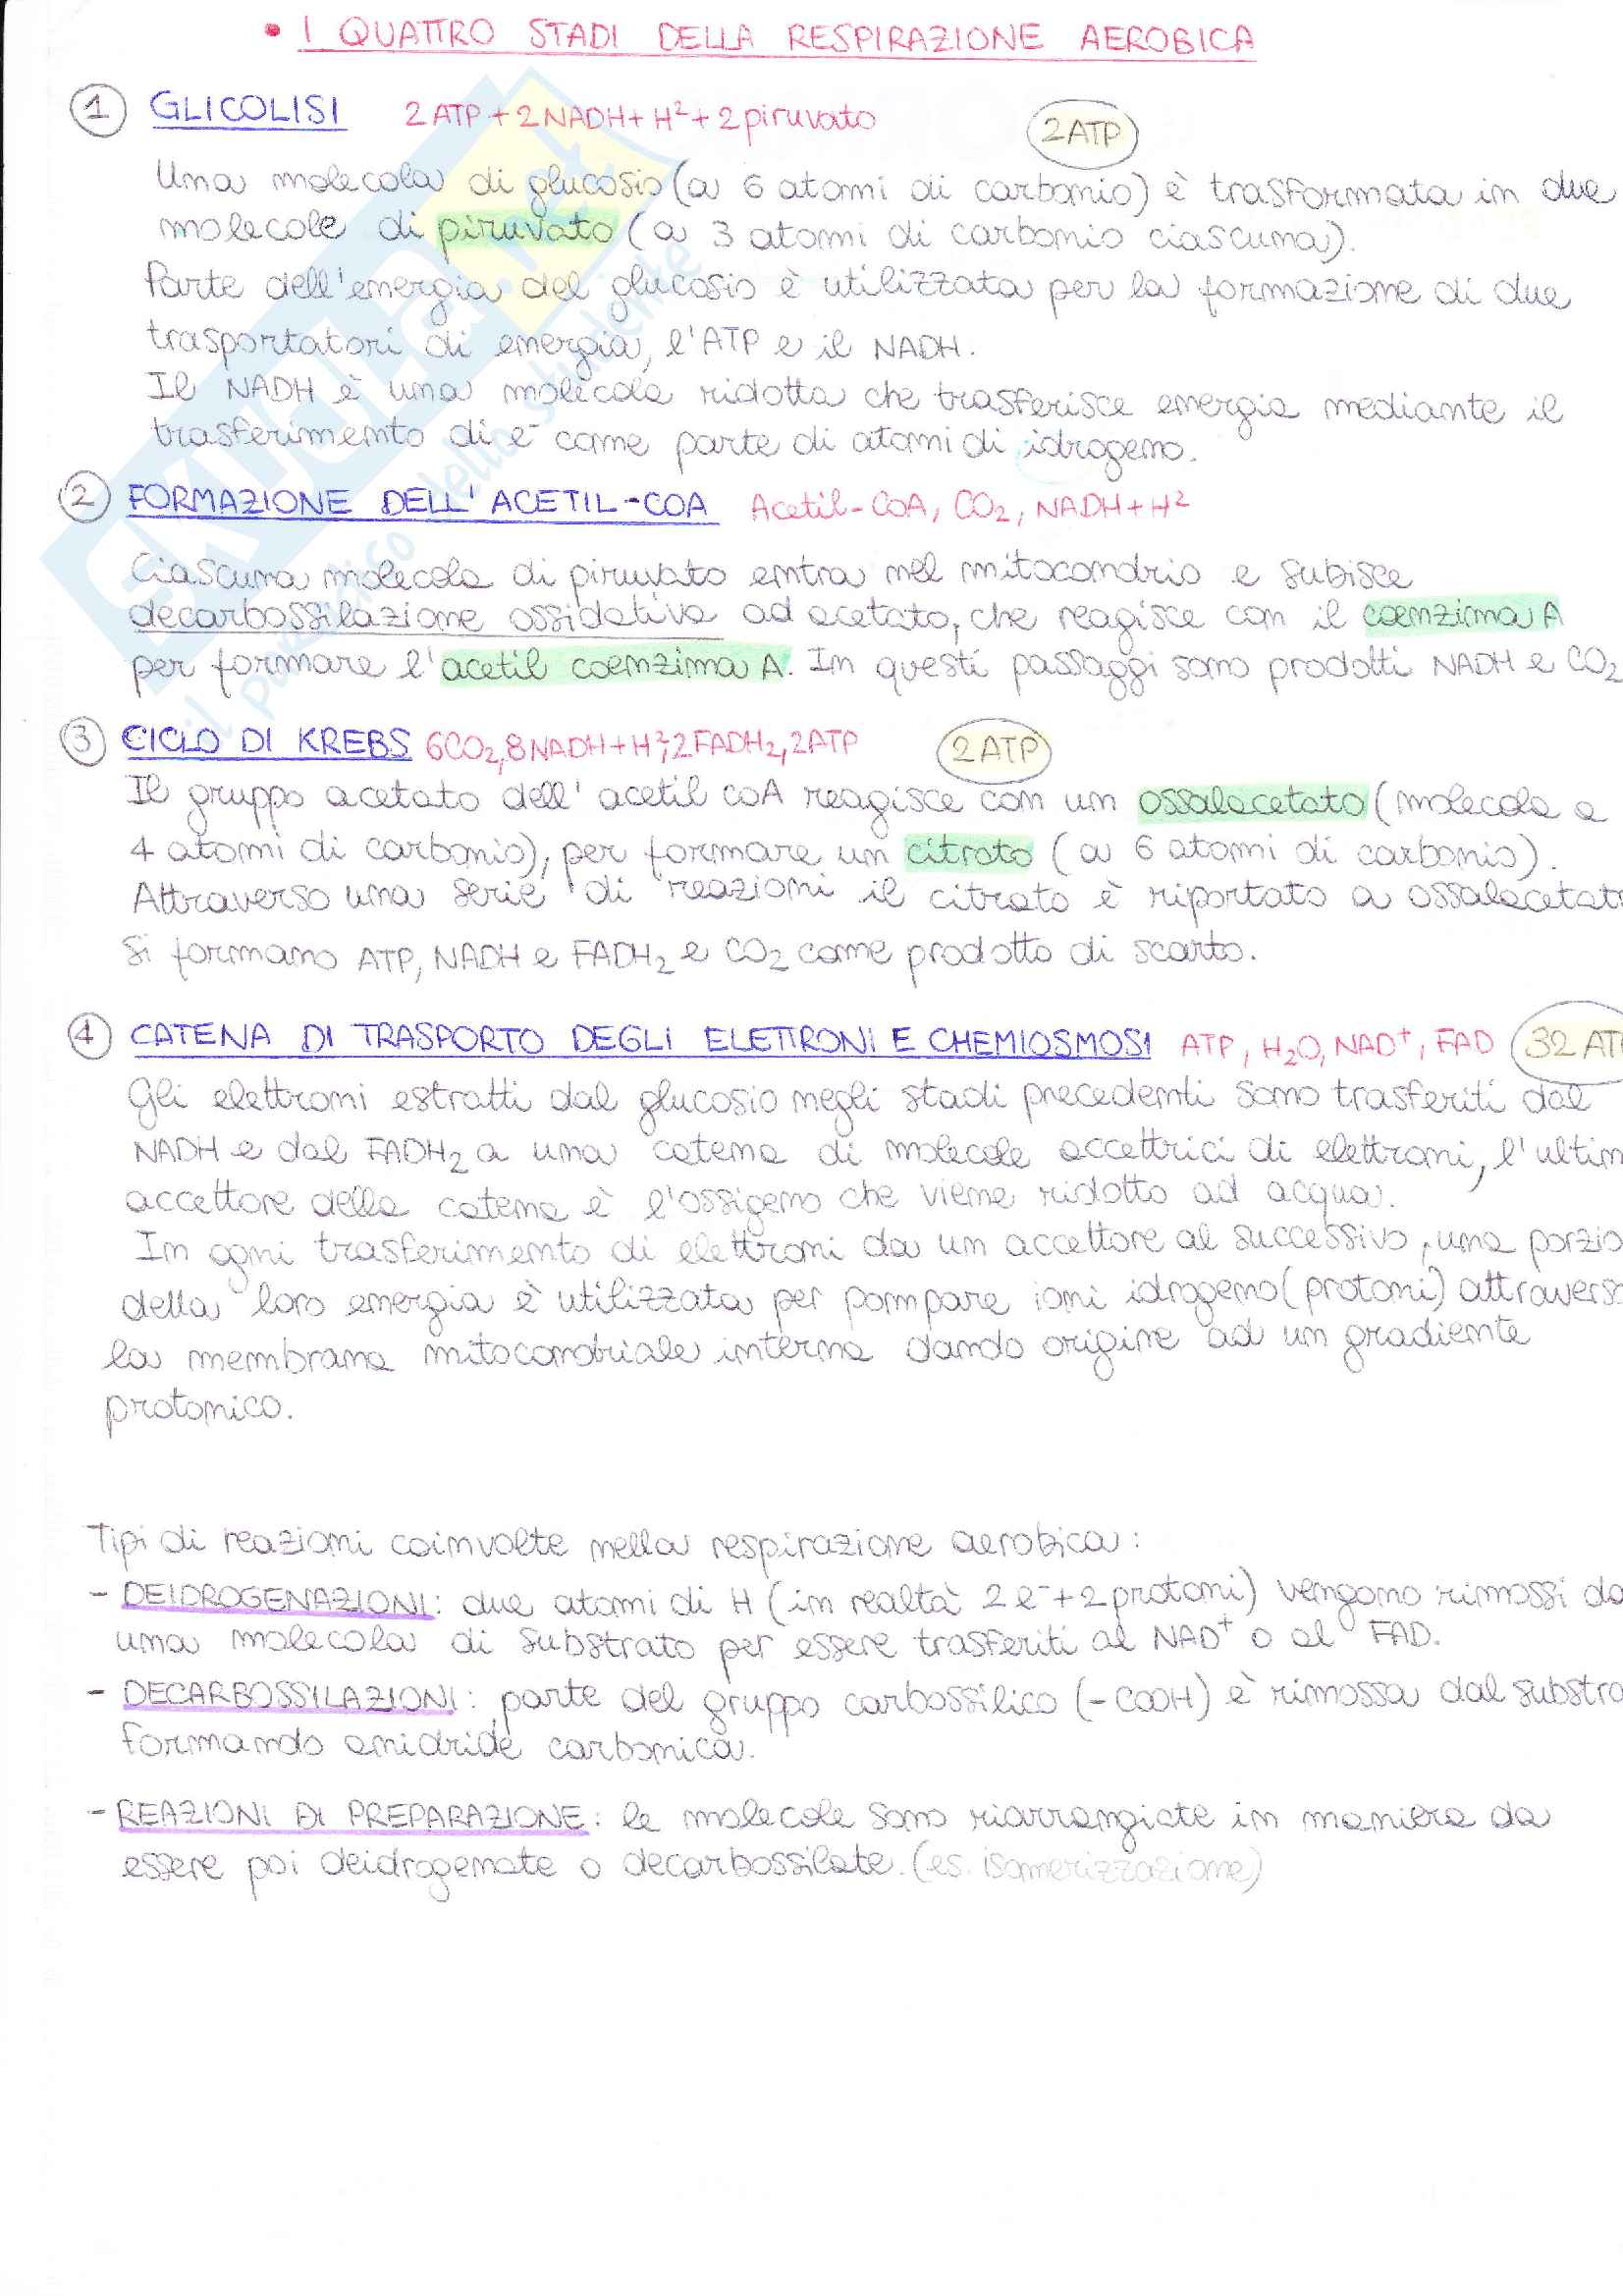 • I QUATTRO STADI DELLA RESPIRAZIONE AEROBICA
1 GLICOLISI 2 ATP + 2 NADH + H² + 2 piruvato 2 ATP
Una molecola di glucosio (a 6 atomi di carbonio) è trasformata in due
molecole di piruvato (a 3 atomi di carbonio ciascuna).
Parte dell'energia del glucosio è utilizzata per la formazione di due
trasportatori di energia, l'ATP e il NADH.
Il NADH è una molecola ridotta che trasferisce energia mediante il
trasferimento di e⁻ come parte di atomi di idrogeno.
2 FORMAZIONE DELL'ACETIL-COA Acetil-COA, CO₂, NADH + H²
Ciascuna molecola di piruvato entra nel mitocondrio e subisce
decarbossilazione ossidativa ad acetato, che reagisce con il coenzima A
per formare l'acetil coenzima A. In questi passaggi sono prodotti NADH e CO₂
3 CICLO DI KREBS 6CO₂, 8NADH + H², 2FADH₂, 2ATP 2 ATP
Il gruppo acetato dell'acetil coA reagisce con un ossalacetato (molecola a
4 atomi di carbonio), per formare un citrato (a 6 atomi di carbonio).
Attraverso una serie di reazioni il citrato è riportato a ossalacetat
Si formano ATP, NADH e FADH₂ e CO₂ come prodotto di scarto.
4 CATENA DI TRASPORTO DEGLI ELETTRONI E CHEMIOSMOSI ATP, H₂O, NAD⁺, FAD 32 AT
Gli elettroni estratti dal glucosio negli stadi precedenti sono trasferiti dal
NADH e dal FADH₂ a una catena di molecole accettrici di elettroni, l'ultim
accettore della catena è l'ossigeno che viene ridotto ad acqua.
In ogni trasferimento di elettroni da un accettore al successivo, una porzio
della loro energia è utilizzata per pompare ioni idrogeno (protoni) attraverso
la membrana mitocondriale interna dando origine ad un gradiente
protonico.
Tipi di reazioni coinvolte nella respirazione aerobica:
- DEIDROGENAZIONI: due atomi di H (in realtà 2 e⁻ + 2 protoni) vengono rimossi da
una molecola di substrato per essere trasferiti al NAD⁺ o al FAD.
- DECARBOSSILAZIONI: parte del gruppo carbossilico (-COOH) è rimossa dal substra
formando anidride carbonica.
- REAZIONI DI PREPARAZIONE: le molecole sono riarrangiate in maniera da
essere poi deidrogenate o decarbossilate. (es. isomerizzazione)
SKUOLA.net
il paradiso dello studente